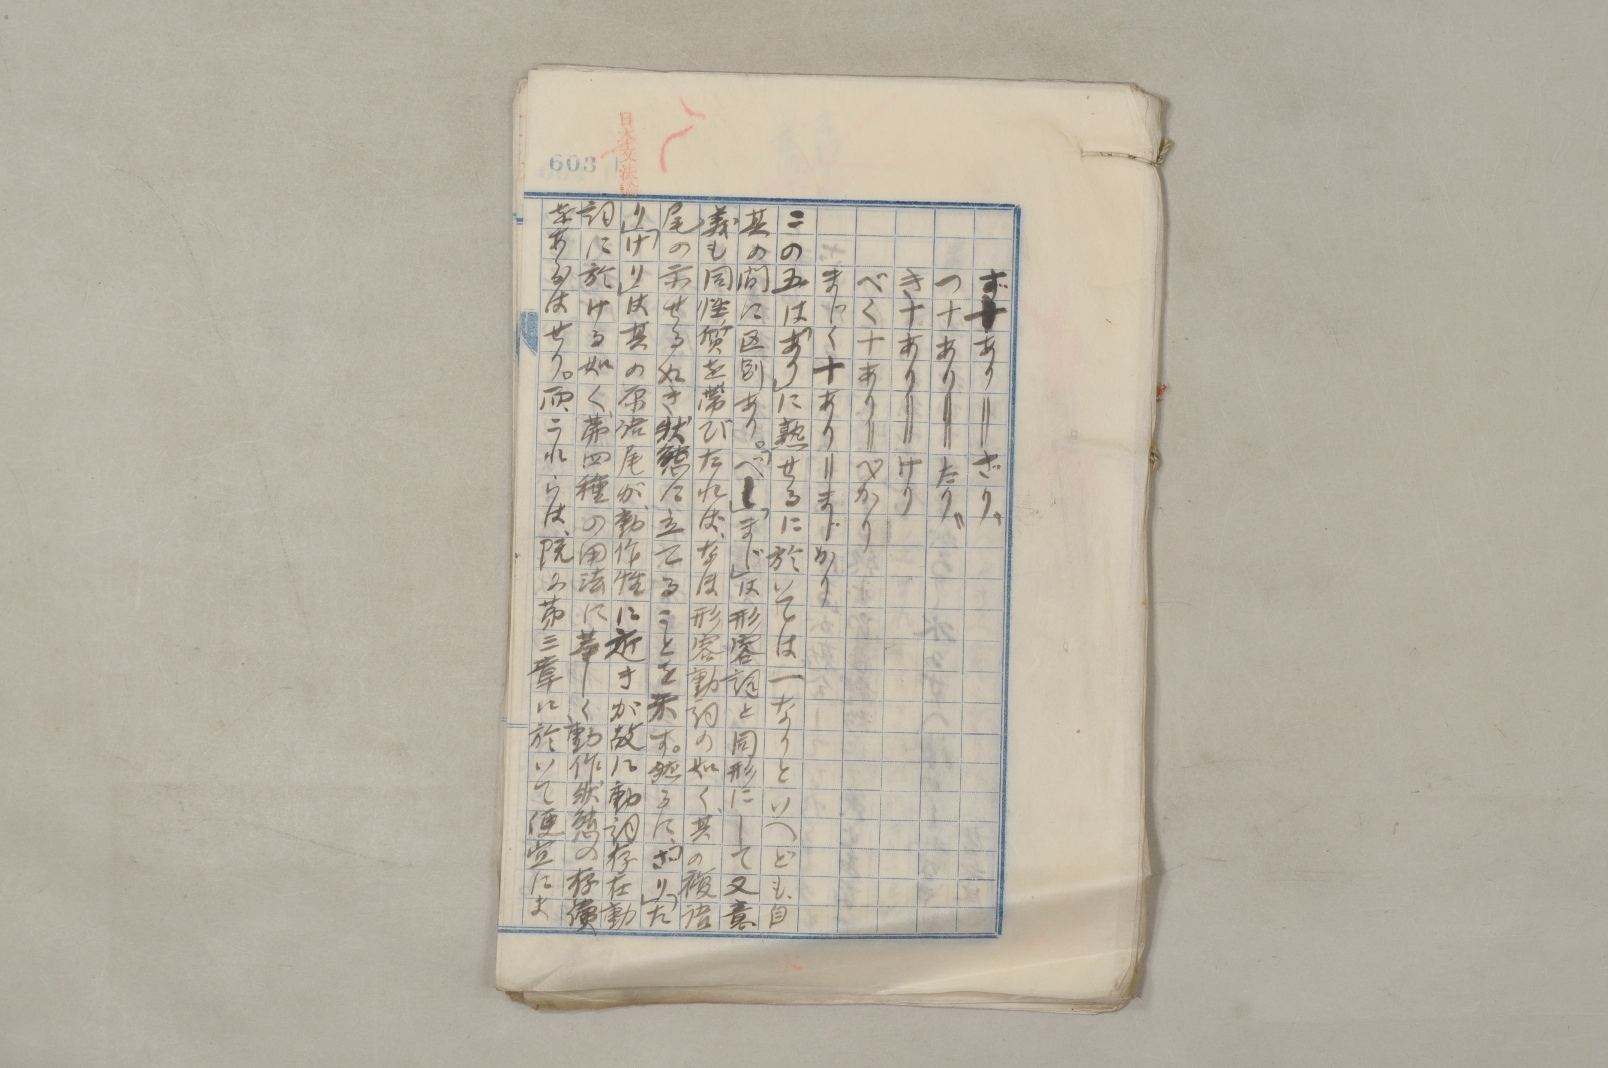 603
日本文法論
ず＋あり＝ざり
つ＋あり＝たり
き＋あり＝けり
べく＋あり＝べかり
まじく＋あり＝まじかり
この五は「あり」に熟せるに於いては一なりといへども、自
其の間に区別あり。「べし」「まじ」は形容詞と同形にして又意
義も同性質を帯びたれば、なほ形容動詞の如く、其の複語
尾の示せる如き状態に立てることを示す。然るに、「ざり」「た
り」「けり」は其の原語尾が動作性に近きが故に動詞存在動
詞に於ける如く、第四種の用法に等しく動作状態の存
をあらはせり。而、これらは、既に第三章に於いて便宜にま